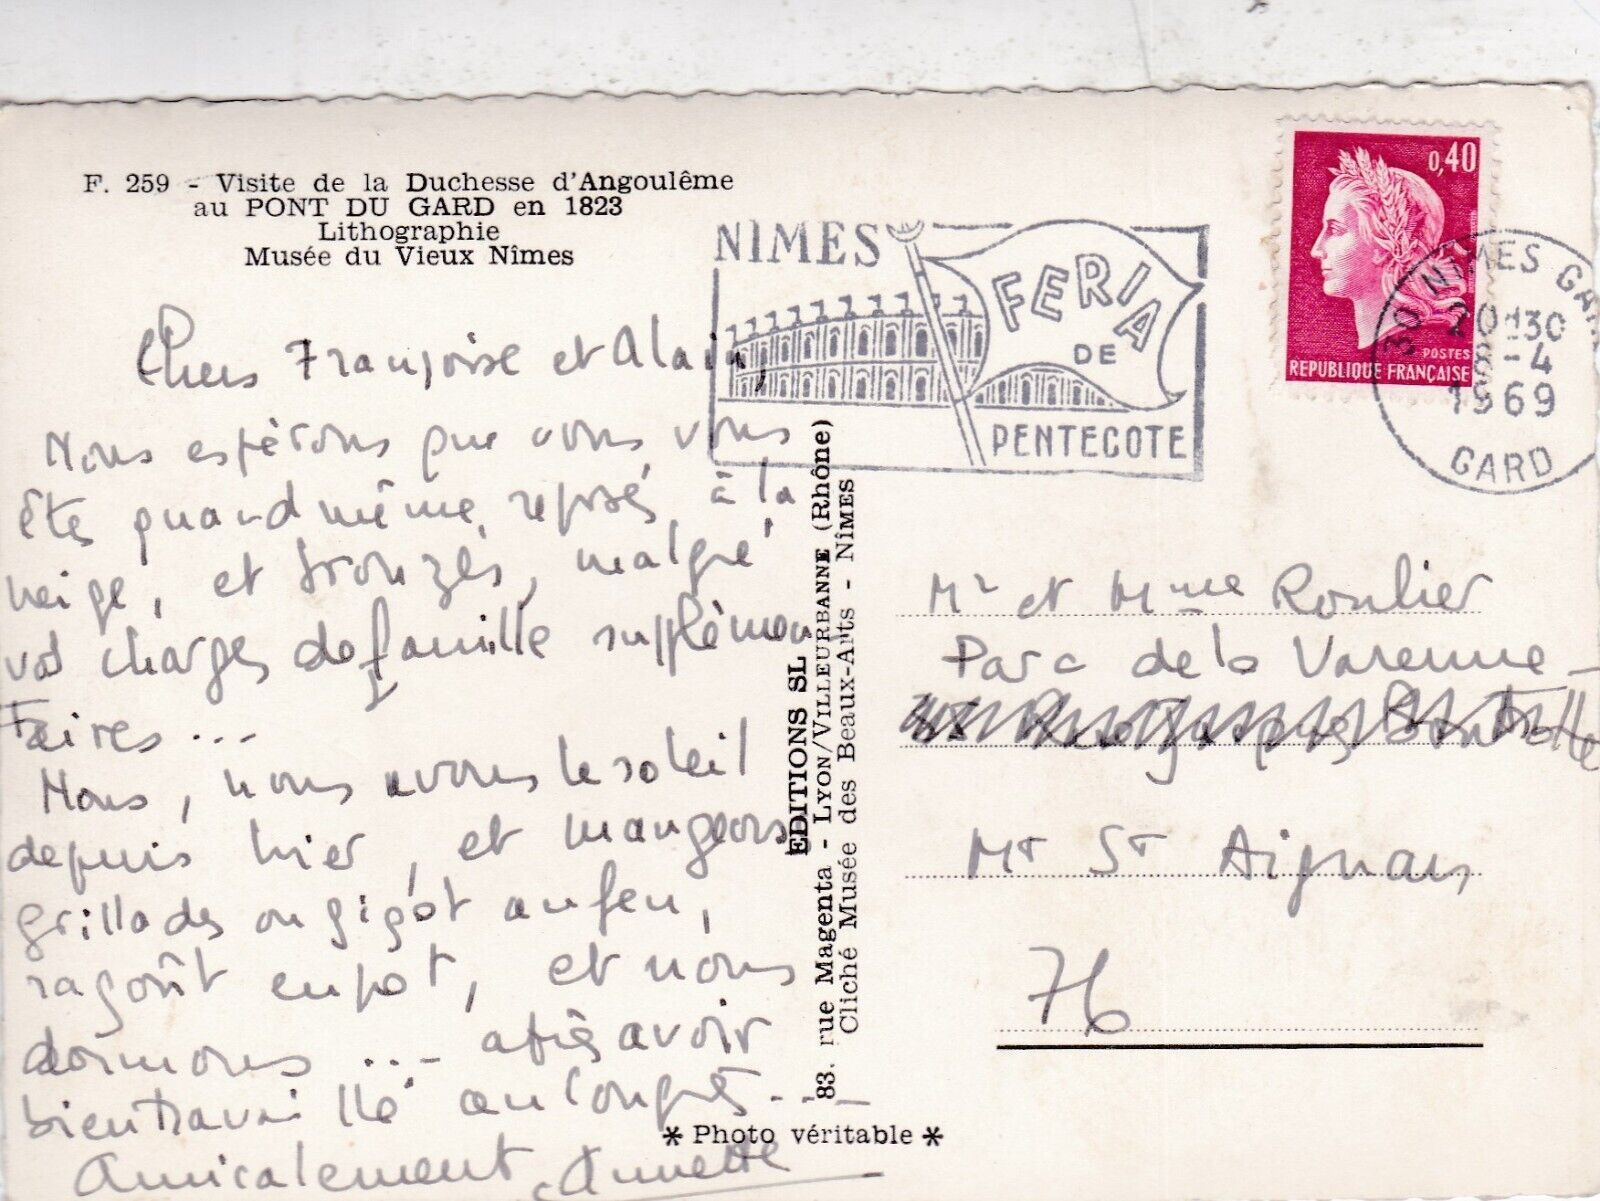 F. 259 - Visite de la Duchesse d'Angoulême
au PONT DU GARD en 1823
Lithographie
Musée du Vieux Nîmes
Chers Françoise et Alain,
Nous espérons que vous vous
êtes quand même reposés à la
neige, et bronzés, malgré
vos charges de famille supplémen
taires...
Nous, nous avons le soleil
depuis hier, et mangeons
grillades ou gigot au feu,
ragoût en pot, et nous
dormons ... après avoir
bien travaillé au Congrès...
Amicalement, Annette
NÎMES
FERIA
DE
PENTECOTE
0,40
POSTES
REPUBLIQUE FRANÇAISE
30 NIMES GARE
20H30
8-4
1969
GARD
EDITIONS SL
83. rue Magenta - LYON/VILLEURBANNE (Rhône)
Cliché Musée des Beaux-Arts - NÎMES
* Photo véritable *
Mr et Mme Roulier
Parc de la Varenne
Mt St Aignan
76